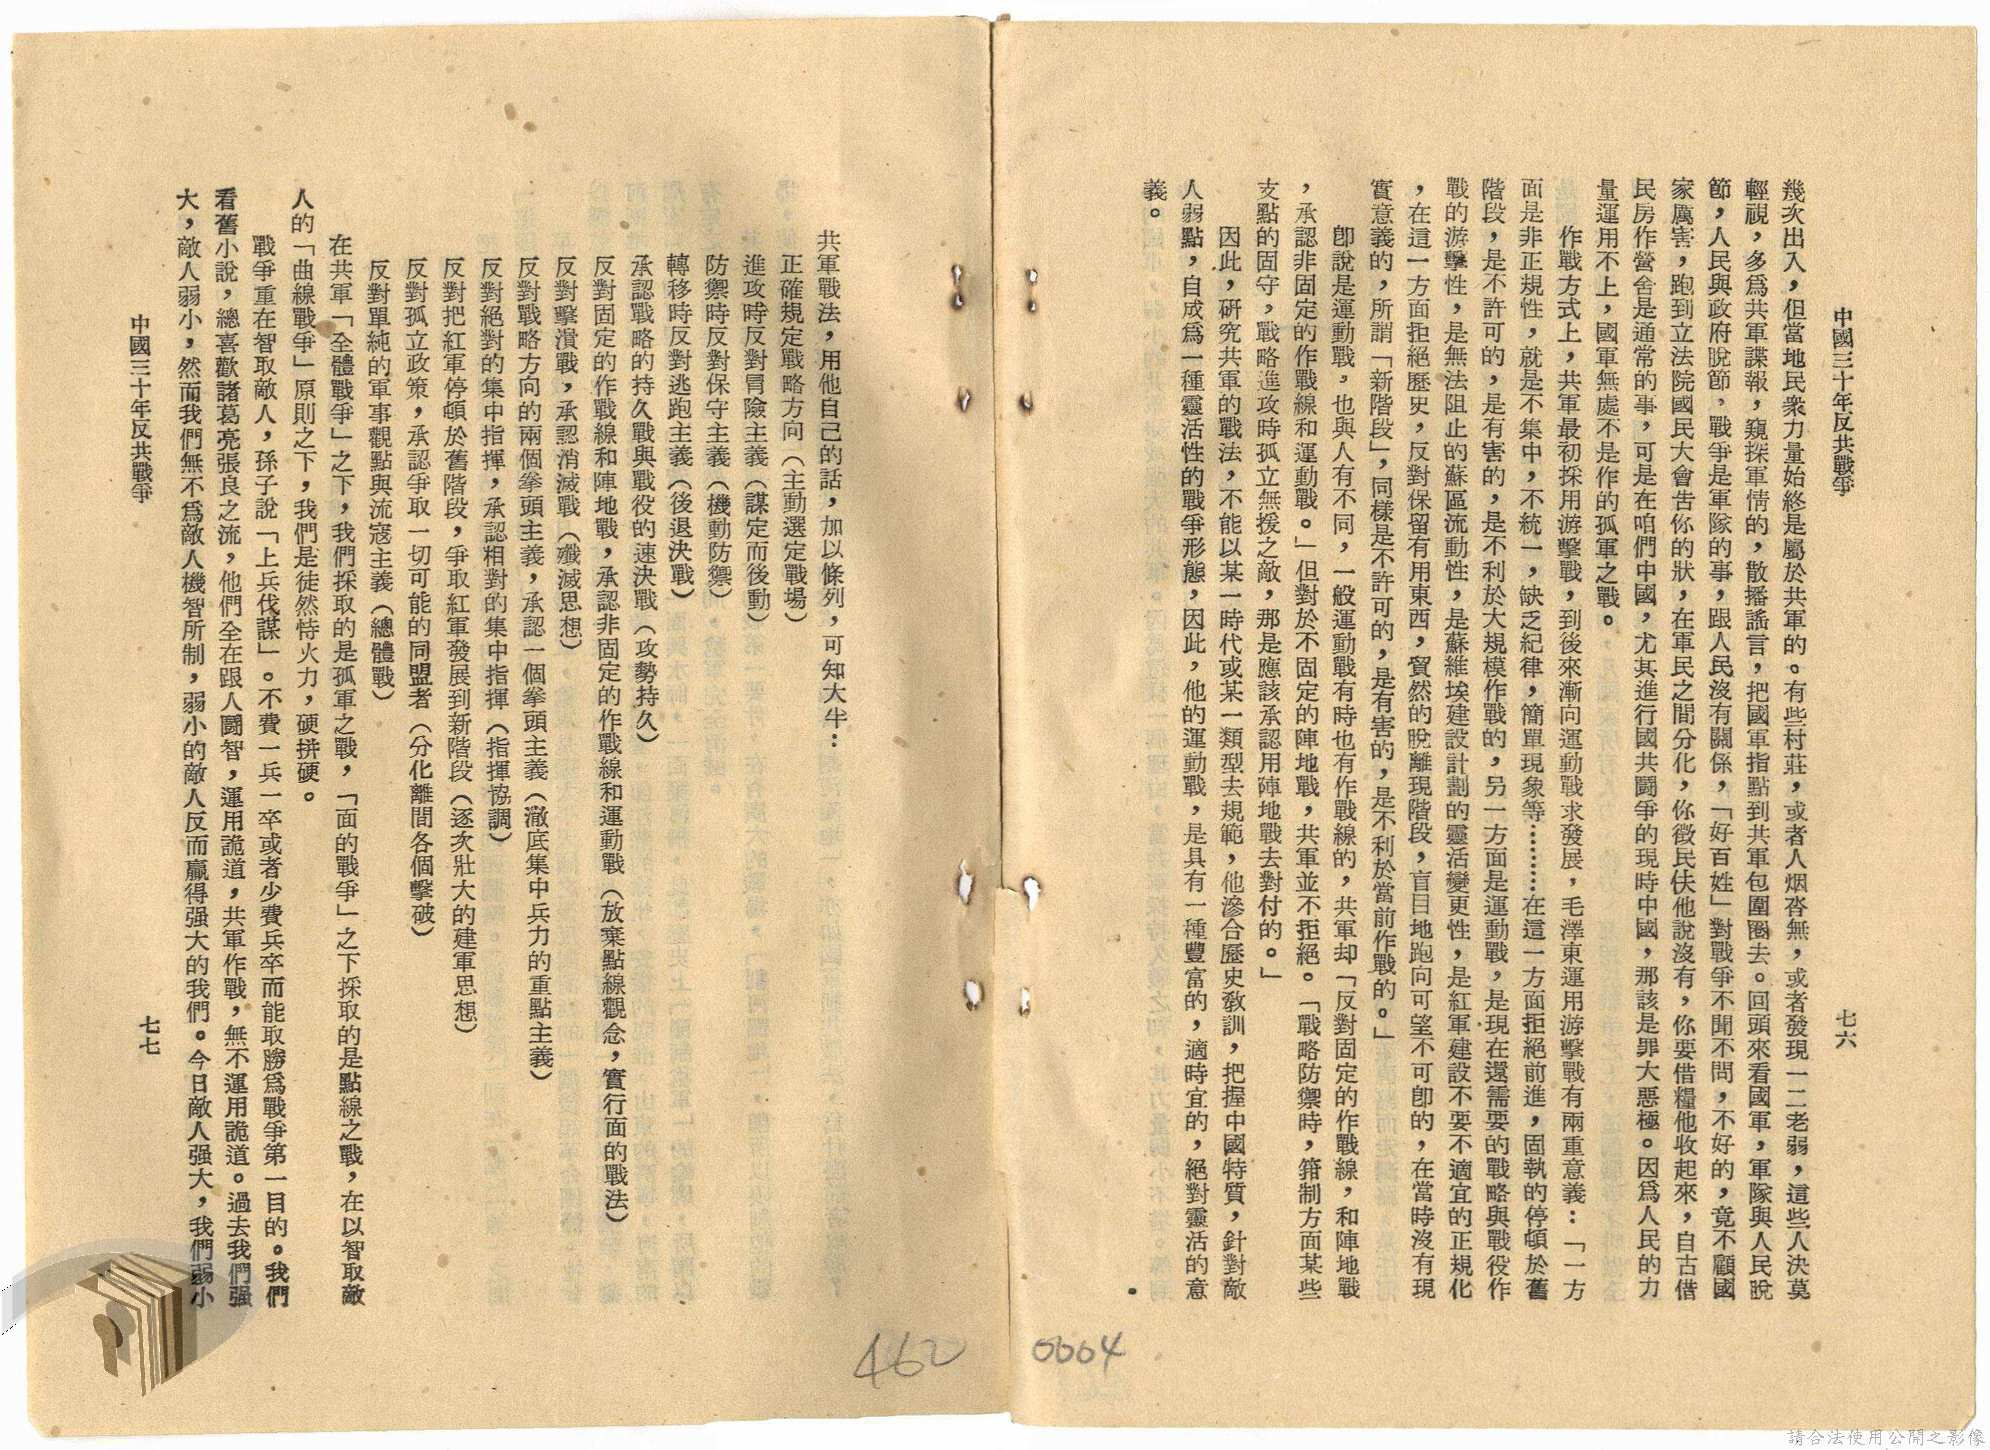 中國三十年反共戰爭
七六
幾次出入，但當地民衆力量始終是屬於共軍的。有些村莊，或者人烟杳無，或者發現一二老弱，這些人決莫
輕視，多爲共軍諜報，窺探軍情的，散播謠言，把國軍指點到共軍包圍圈去。回頭來看國軍，軍隊與人民脫
節，人民與政府脫節，戰爭是軍隊的事，跟人民沒有關係，「好百姓」對戰爭不聞不問，不好的，竟不顧國
家厲害，跑到立法院國民大會告你的狀，在軍民之間分化，你徵民伕他說沒有，你要借糧他收起來，自古借
民房作營舍是通常的事，可是在咱們中國，尤其進行國共鬪爭的現時中國，那該是罪大惡極。因爲人民的力
量運用不上，國軍無處不是作的孤軍之戰。
作戰方式上，共軍最初採用游擊戰，到後來漸向運動戰求發展，毛澤東運用游擊戰有兩重意義：「一方
面是非正規性，就是不集中，不統一，缺乏紀律，簡單現象等………在這一方面拒絕前進，固執的停頓於舊
階段，是不許可的，是有害的，是不利於大規模作戰的，另一方面是運動戰，是現在還需要的戰略與戰役作
戰的游擊性，是無法阻止的蘇區流動性，是蘇維埃建設計劃的靈活變更性，是紅軍建設不要不適宜的正規化
，在這一方面拒絕歷史，反對保留有用東西，貿然的脫離現階段，盲目地跑向可望不可卽的，在當時沒有現
實意義的，所謂「新階段」，同樣是不許可的，是有害的，是不利於當前作戰的。」
卽說是運動戰，也與人有不同，一般運動戰有時也有作戰線的，共軍却「反對固定的作戰線，和陣地戰
，承認非固定的作戰線和運動戰。」但對於不固定的陣地戰，共軍並不拒絕。「戰略防禦時，箝制方面某些
支點的固守，戰略進攻時孤立無援之敵，那是應該承認用陣地戰去對付的。」
因此，研究共軍的戰法，不能以某一時代或某一類型去規範，他滲合歷史敎訓，把握中國特質，針對敵
人弱點，自成爲一種靈活性的戰爭形態，因此，他的運動戰，是具有一種豐富的，適時宜的，絕對靈活的意
義。
0004
共軍戰法，用他自己的話，加以條列，可知大半：
正確規定戰略方向（主動選定戰場）
進攻時反對冒險主義（謀定而後動）
防禦時反對保守主義（機動防禦）
轉移時反對逃跑主義（後退決戰）
承認戰略的持久戰與戰役的速決戰（攻勢持久）
反對固定的作戰線和陣地戰，承認非固定的作戰線和運動戰（放棄點線觀念，實行面的戰法）
反對擊潰戰，承認消滅戰（殲滅思想）
反對戰略方向的兩個拳頭主義，承認一個拳頭主義（澈底集中兵力的重點主義）
反對絕對的集中指揮，承認相對的集中指揮（指揮協調）
反對把紅軍停頓於舊階段，爭取紅軍發展到新階段（逐次壯大的建軍思想）
反對孤立政策，承認爭取一切可能的同盟者（分化離間各個擊破）
反對單純的軍事觀點與流寇主義（總體戰）
在共軍「全體戰爭」之下，我們採取的是孤軍之戰，「面的戰爭」之下採取的是點線之戰，在以智取敵
人的「曲線戰爭」原則之下，我們是徒然恃火力，硬拼硬。
戰爭重在智取敵人，孫子說「上兵伐謀」。不費一兵一卒或者少費兵卒而能取勝爲戰爭第一目的。我們
看舊小說，總喜歡諸葛亮張良之流，他們全在跟人鬪智，運用詭道，共軍作戰，無不運用詭道。過去我們强
大，敵人弱小，然而我們無不爲敵人機智所制，弱小的敵人反而贏得强大的我們。今日敵人强大，我們弱小
中國三十年反共戰爭
七七
462
請合法使用公開之影像